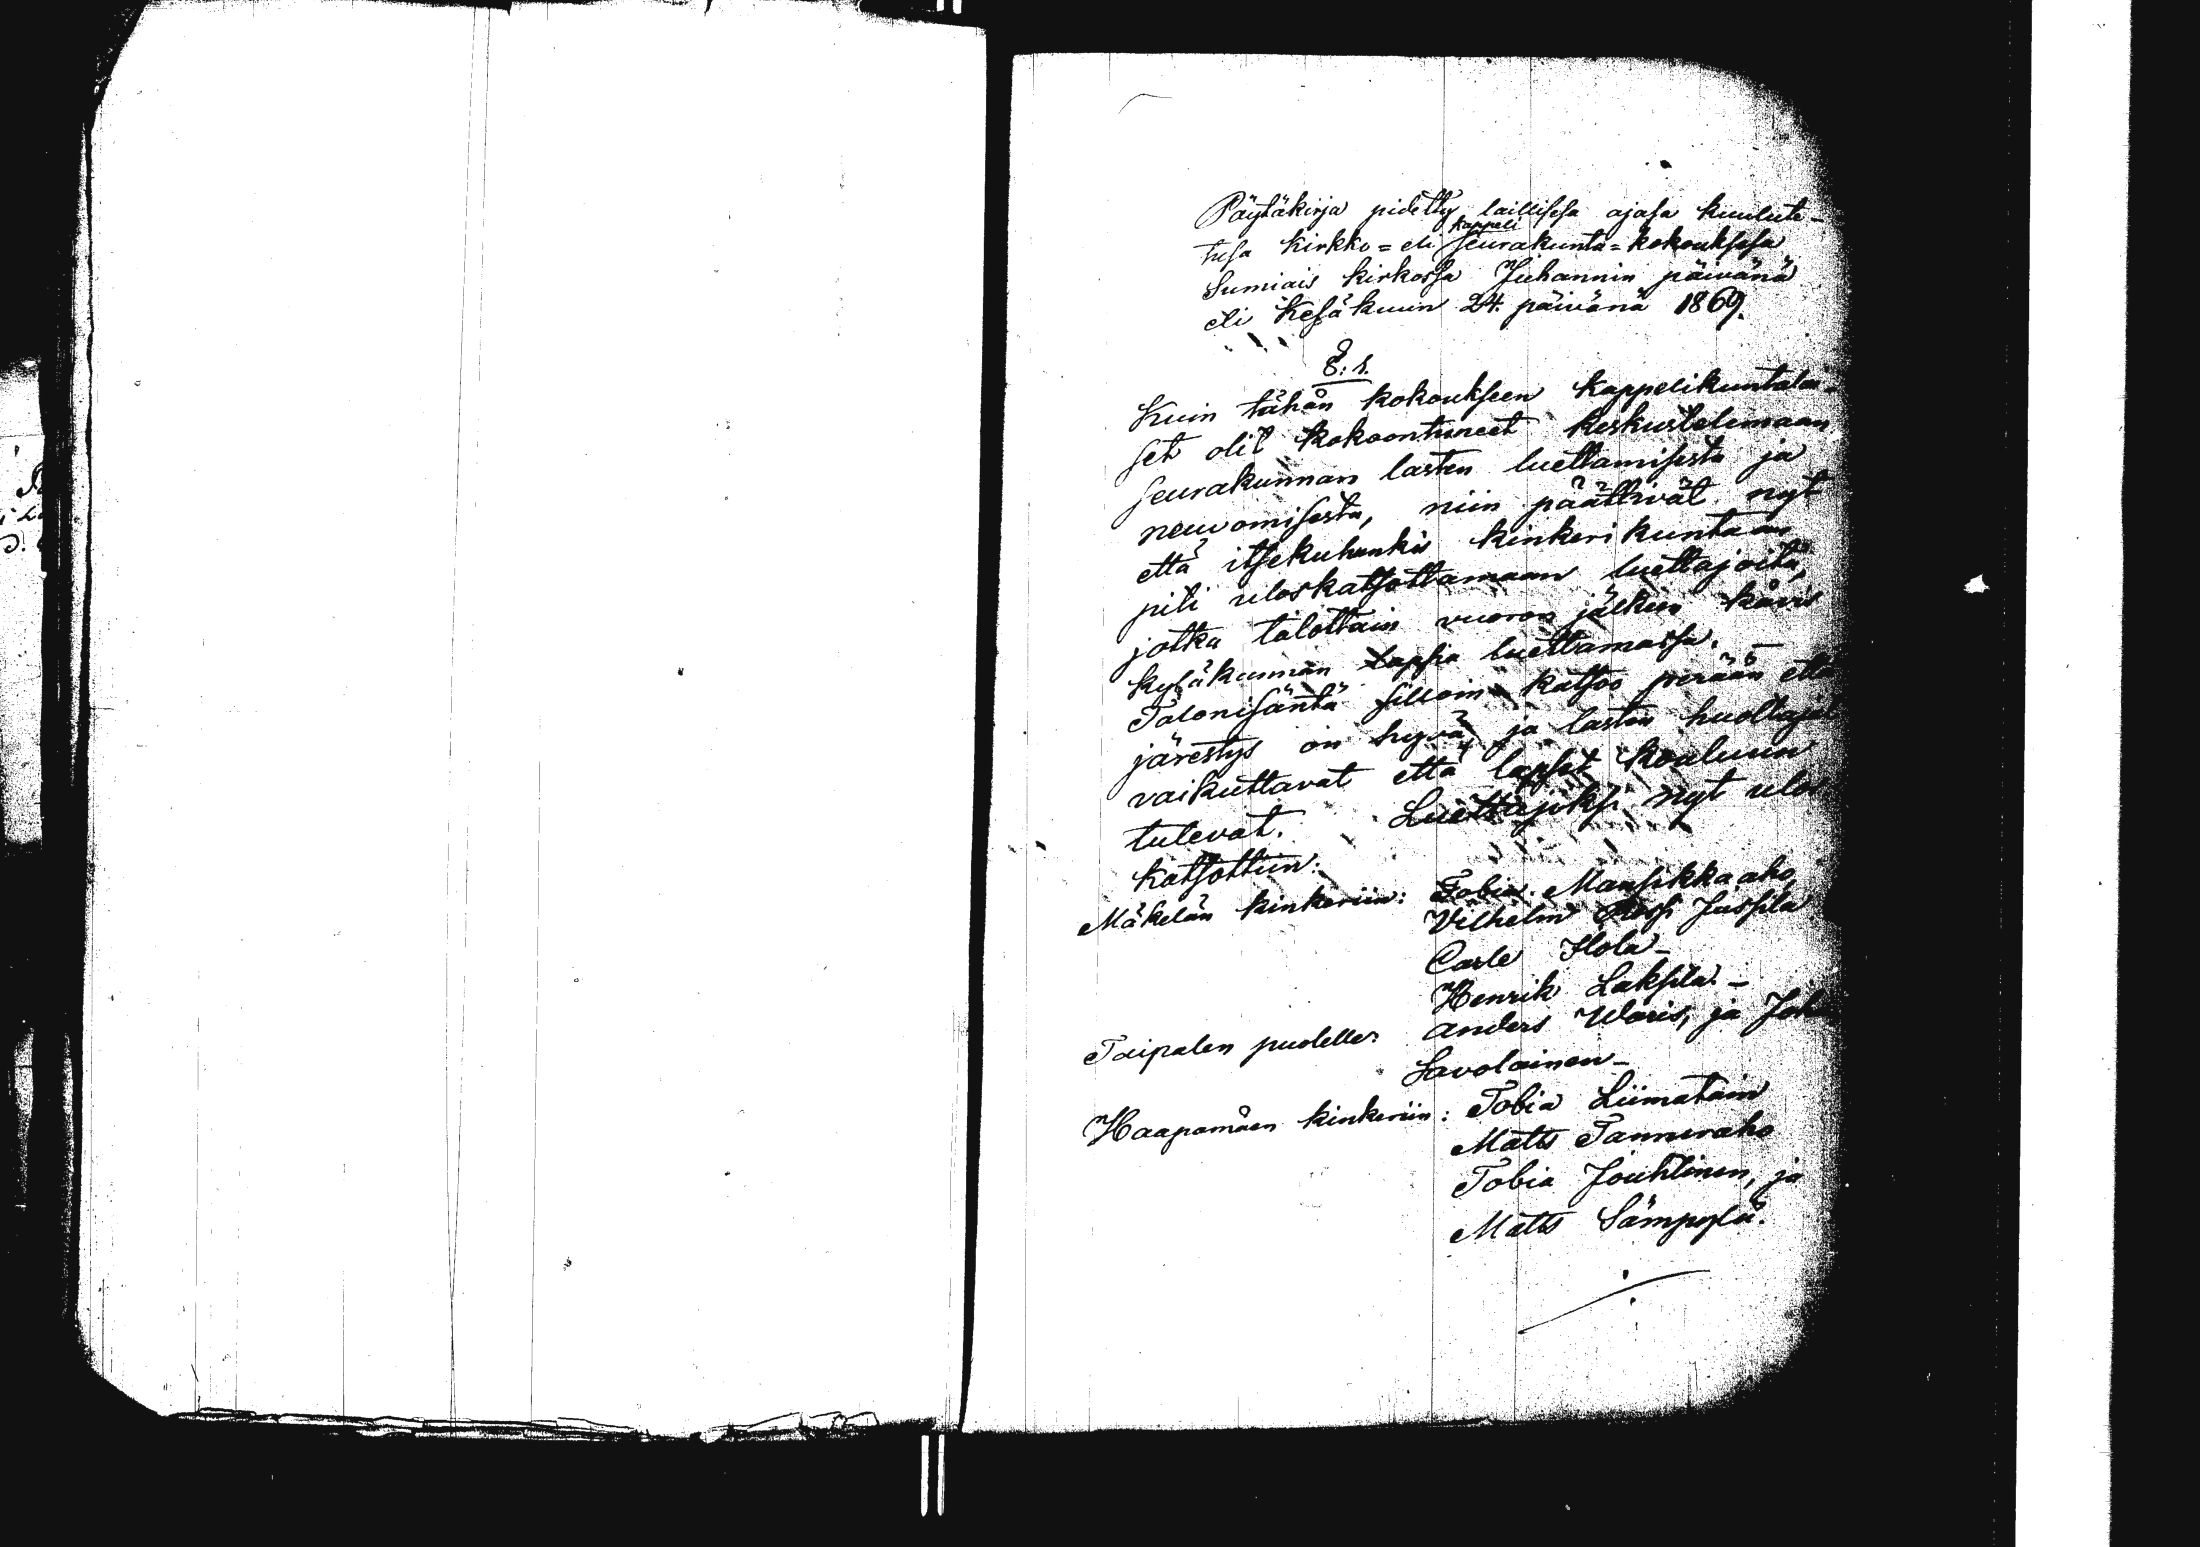 Pöytäkirja pidetty laillisesa ajasa kuulute-
tusa kirkko= eli kappeli seurakunta= kokouksesa
Sumiais kirkossa Juhannin päivänä
eli Kesäkuun 24. päivänä 1869.
§: 1.
Kuin tähän kokoukseen kappelikuntalai-
set olit kokoontuneet keskustelemaan
seurakunnan lasten luettamisesta ja
neuvomisesta, niin päättivät nyt
että itsekuhunkin kinkerikuntaan
piti uloskatsottamaan luettajoita,
jotka talottain vuoron jälkeen kävis
kyläkunnan lapsia luettamassa. —
Talonisäntä silloin katsoo perään että
järestys on hyvä, ja lasten huoltajat
vaikuttavat että lapset kouluun
tulevat. Luettajiksi nyt ulos
katsottiin:
Mäkelän kinkeriin: Tobia Mansikkaaho
Vilhelm Jussila
Carle Ilola —
Henrik Laksila. —
Taipalen puolelle: Anders Waris, ja Joh
Savolainen —
Haapamäen kinkeriin: Tobia Liimatain
Matts Tanneraho
Tobia Jouhtinen, ja
Matts Sämpylä.